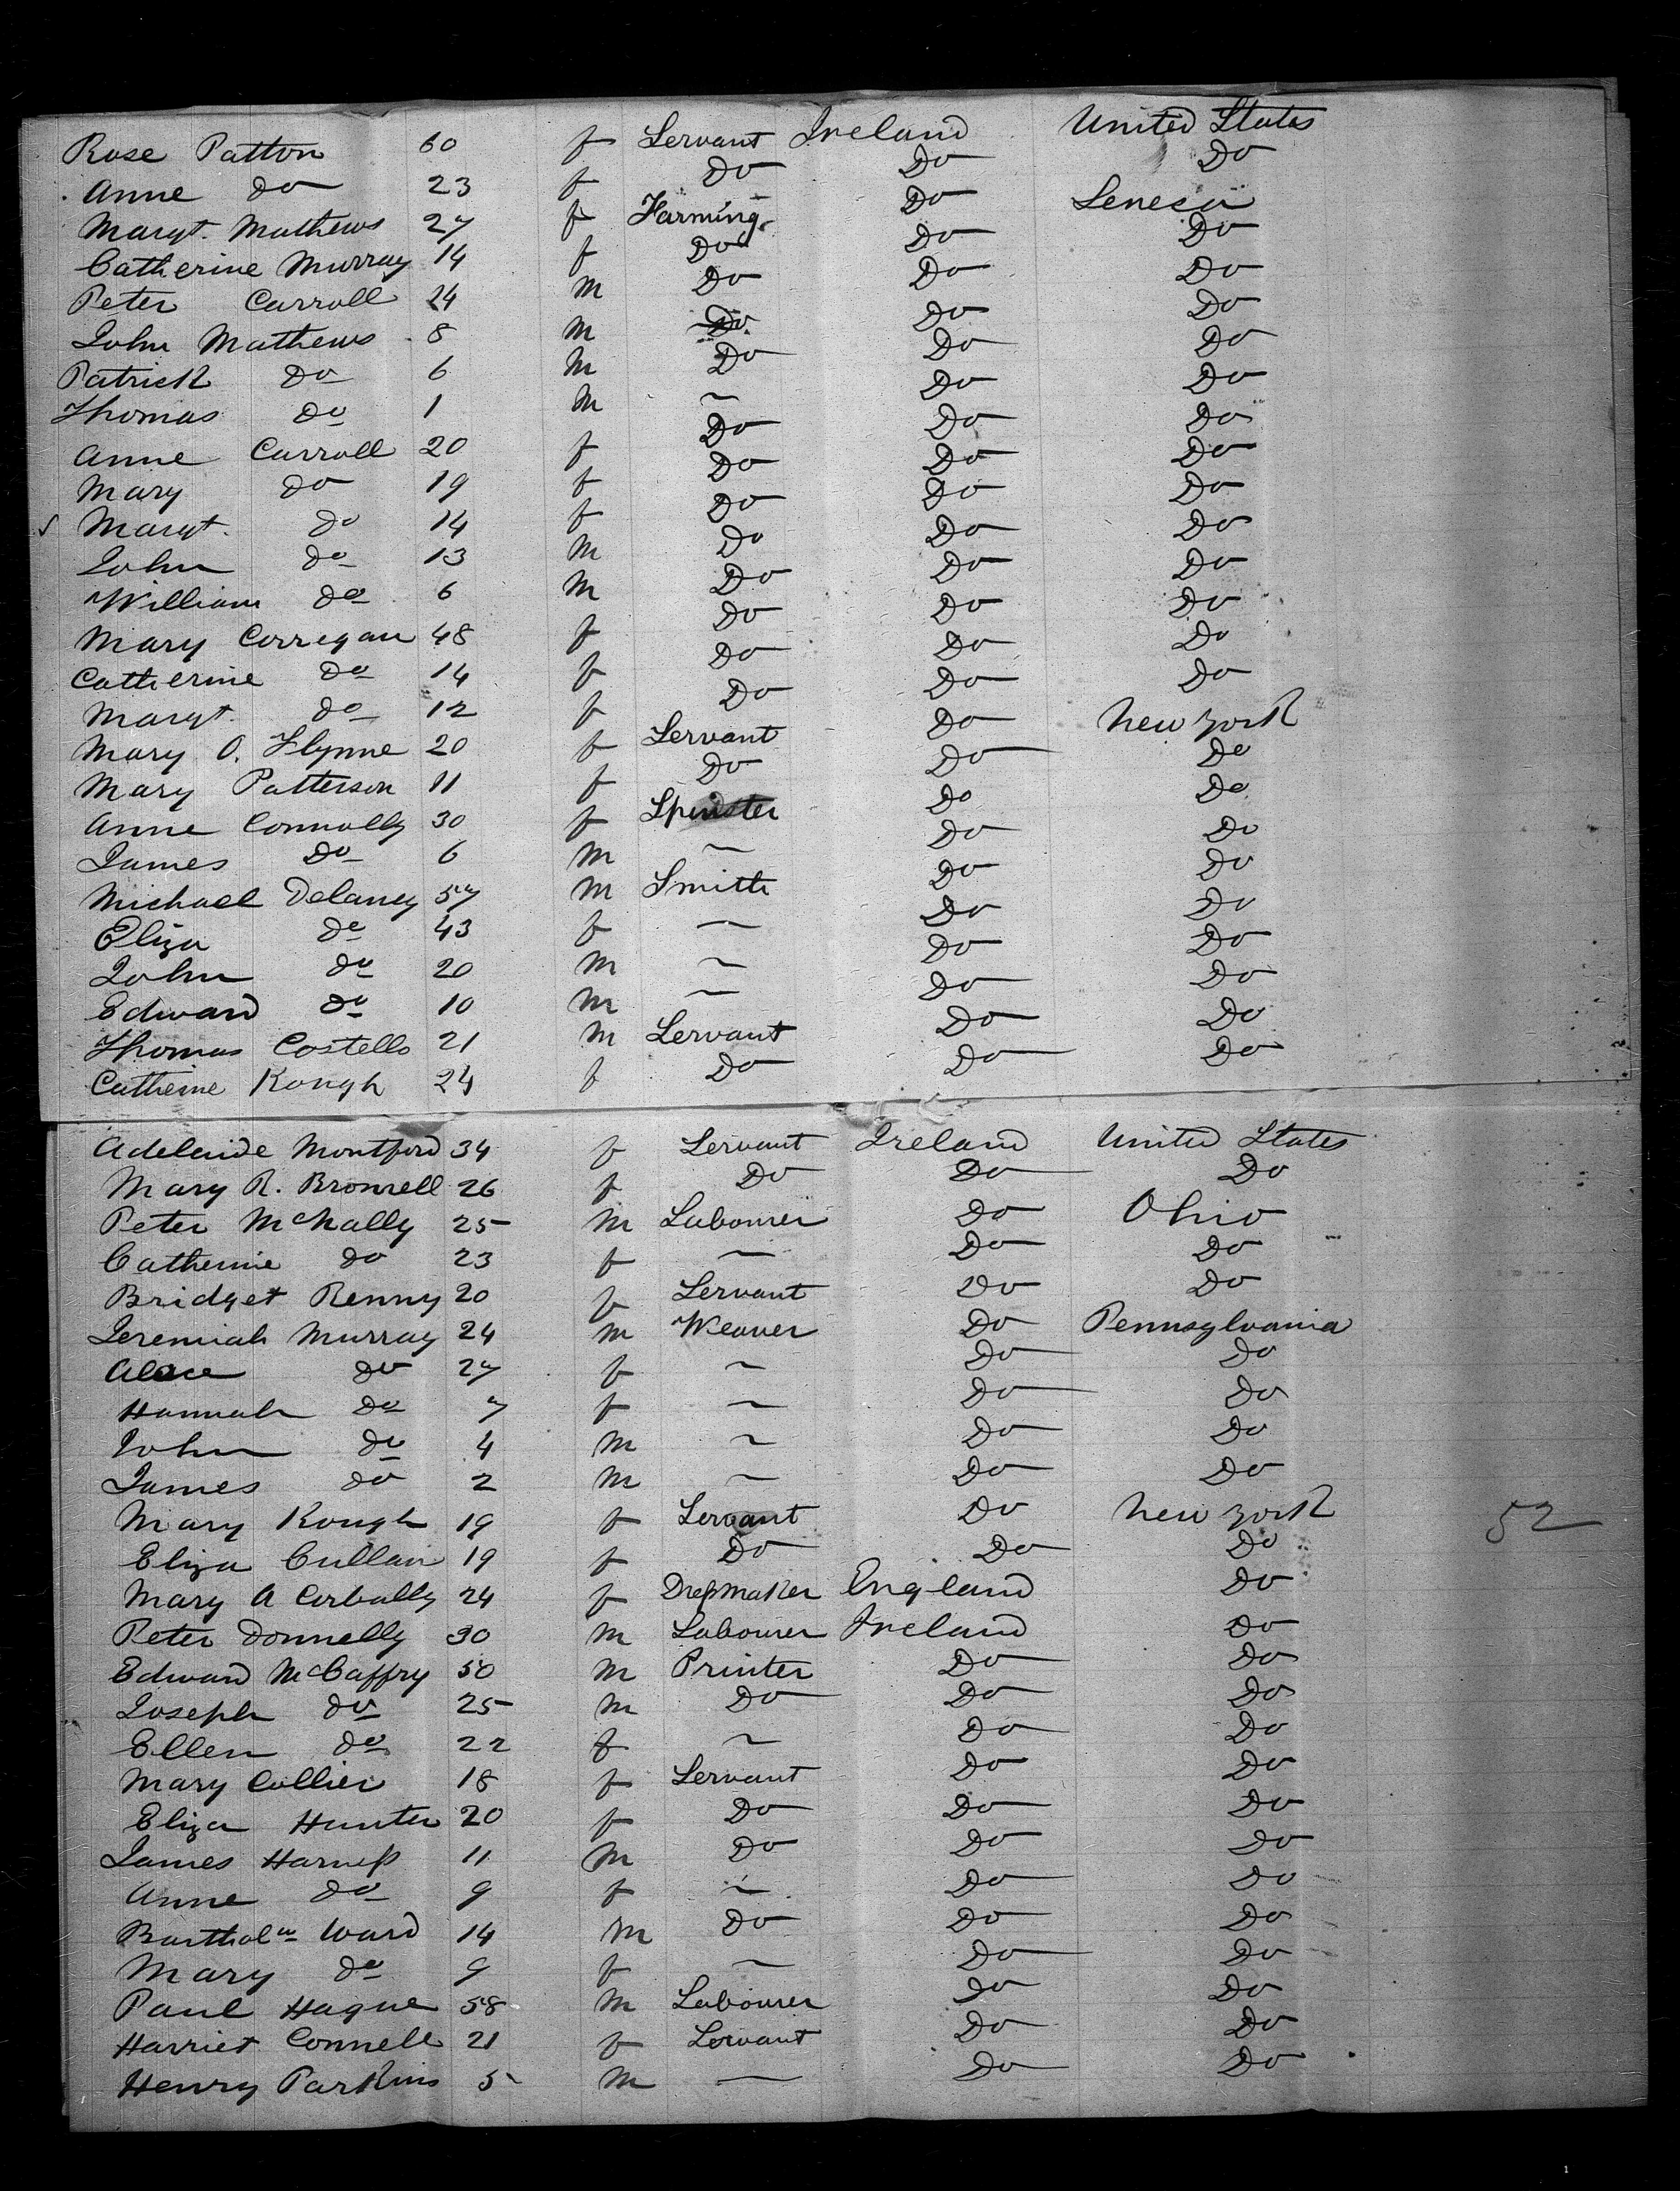 Rose Patton 60 f Servant Ireland United States
Anne Do 23 f Do Do Do
Margt. Mathews 27 f Farming Do Seneca
Catherine Murray 14 f Do Do Do
Peter Carroll 24 m Do Do Do
John Mathews 8 m Do Do Do
Patrick Do 6 m Do Do Do
Thomas Do 1 m ~ Do Do
Anne Carroll 20 f Do Do Do
Mary Do 19 f Do Do Do
Margt. Do 14 f Do Do Do
John Do 13 m Do Do Do
William Do 6 m Do Do Do
Mary Corregan 48 f Do Do Do
Catherine Do 14 f Do Do Do
Margt. Do 12 f Do Do Do
Mary O. Flynne 20 f Servant Do New York
Mary Patterson 11 f Do Do Do
Anne Connolly 30 f Spinster Do Do
James Do 6 m ~ Do Do
Michael Delaney 57 m Smith Do Do
Eliza Do 43 f ~ Do Do
John Do 20 m ~ Do Do
Edward Do 10 m ~ Do Do
Thomas Costello 21 m Servant Do Do
Catherine Kough 24 f Do Do Do
Adelaide Montford 34 f Servant Ireland United States
Mary R. 26 f Do Do Do
Peter McNally 25 m Labourer Do Ohio
Catherine Do 23 f ~ Do Do
Bridget Renny 20 f Servant Do Do
Jeremiah Murray 24 m Weaver Do Pennsylvania
Do 27 f ~ Do Do
Hannah Do 7 f ~ Do Do
John Do 4 m ~ Do Do
James Do 2 m ~ Do Do
Mary Kough 19 f Servant Do New York 52
Eliza Cullan 19 f Do Do Do
Mary A Corbally 24 f Dressmaker England Do
Peter Donnelly 30 m Labourer Ireland Do
Edward McCaffry 50 m Printer Do Do
Joseph Do 25 m Do Do Do
Ellen Do 22 f ~ Do Do
Mary Collier 18 f Servant Do Do
Eliza Hunter 20 f Do Do Do
James Harness 11 m Do Do Do
Anne Do 9 f ~ Do Do
Bartholw Ward 14 m Do Do Do
Mary Do 9 f ~ Do Do
Paul Hague 58 m Labourer Do Do
Harriet Connell 21 f Servant Do Do
Henry Parkins 5 m ~ Do Do
1